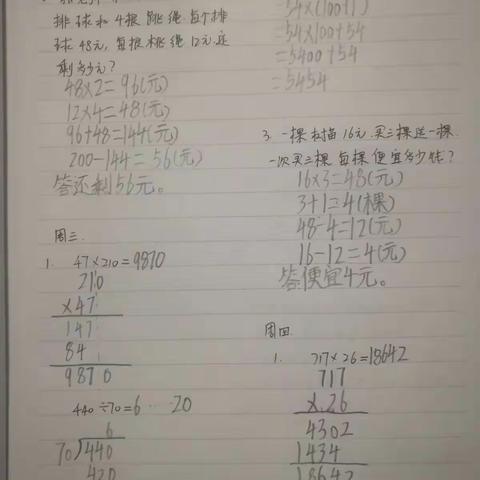 排球和4根跳绳.每个排
球48元,每根跳绳12元,还
剩多少元?
48×2=96(元)
12×4=48(元)
96+48=144(元)
200-144=56(元)
答还剩56元。
周三.
1. 47×210=9870
210
×47
147
84
9870
440÷70=6……20
6
70)440
420
54×(100+1)
=54×100+54
=5400+54
=5454
3. 一棵树苗16元.买三棵送一棵.
一次买三棵.每棵便宜多少钱?
16×3=48(元)
3+1=4(棵)
48÷4=12(元)
16-12=4(元)
答便宜4元。
周四.
1. 717×26=18642
717
×26
4302
1434
18642